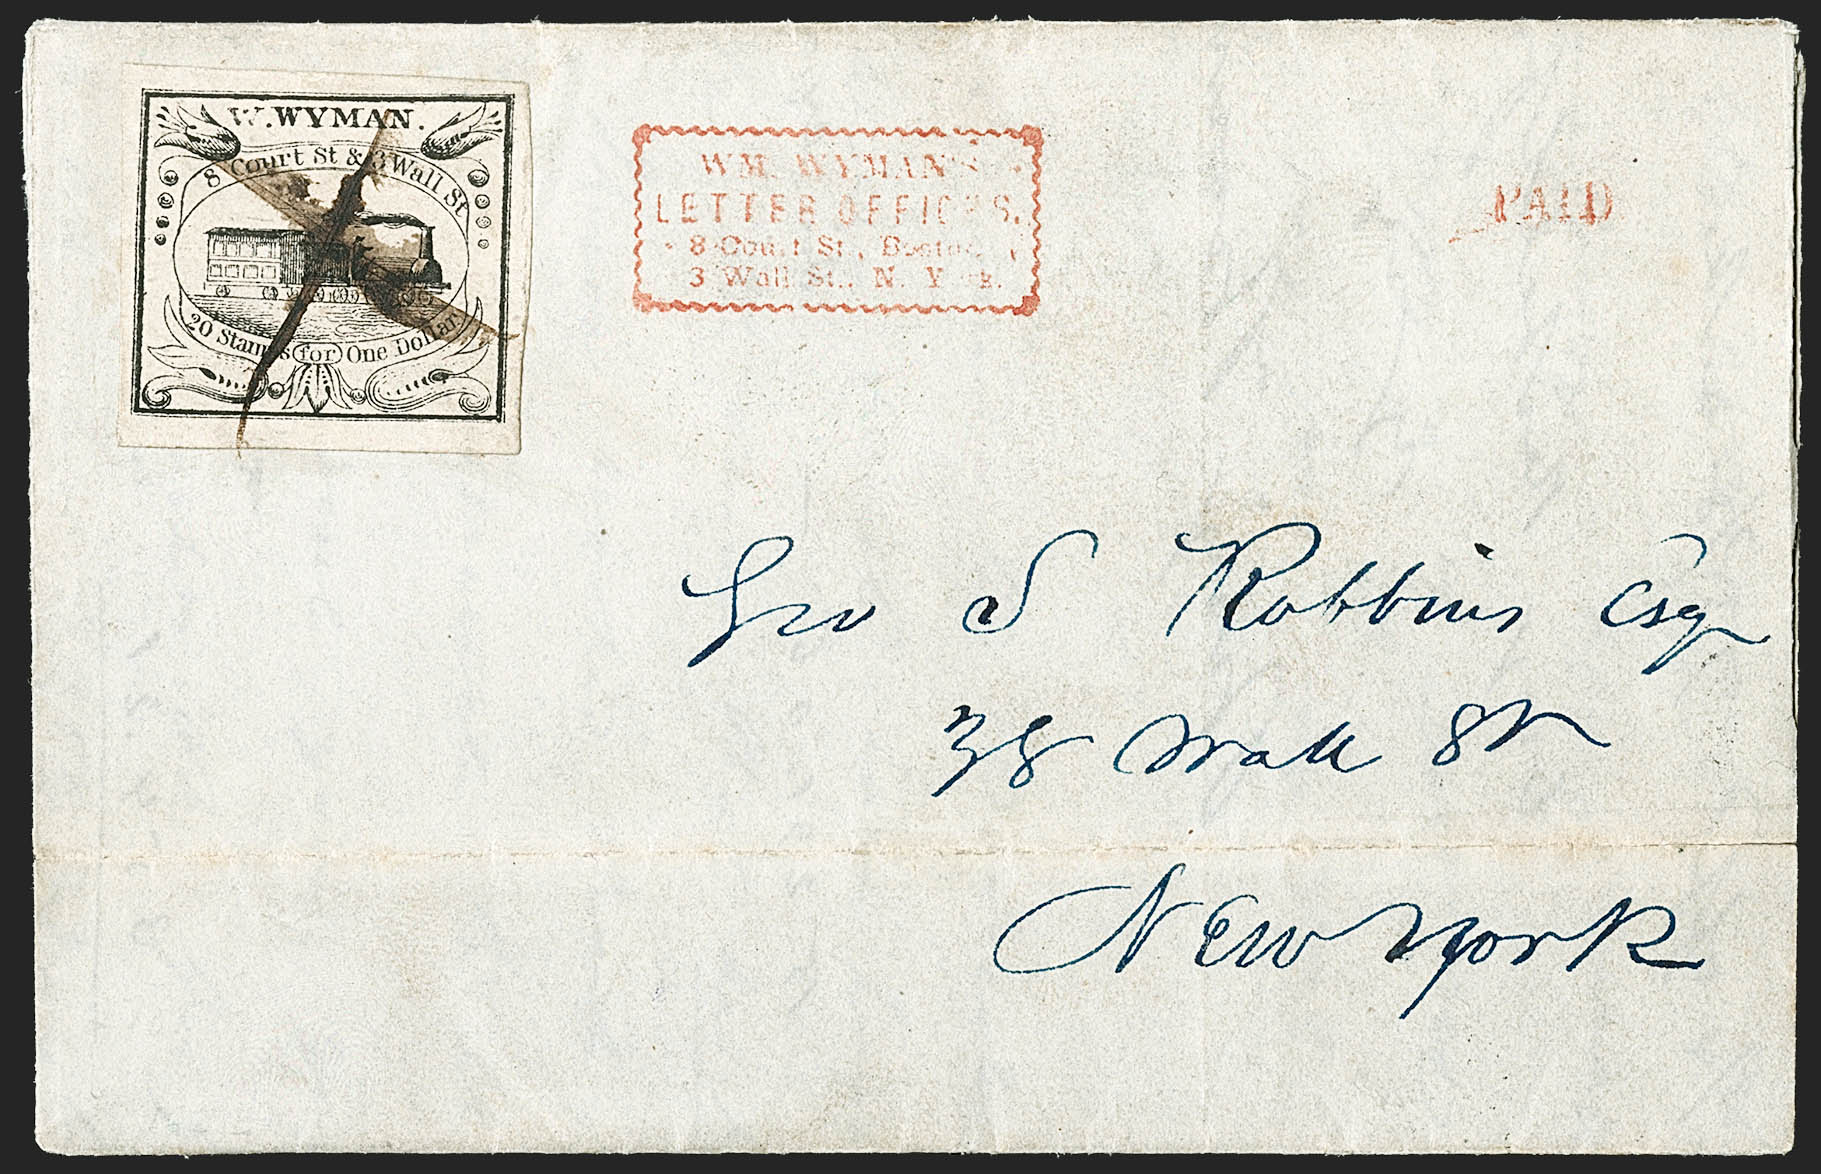 W. WYMAN.
8 Court St & 3 Wall St
20 Stamps for One Dollar
WM. WYMAN'S
LETTER OFFICES.
8 Court St., Boston,
3 Wall St., N. York.
PAID
Geo S Robbins Esq
38 Wall St
New York